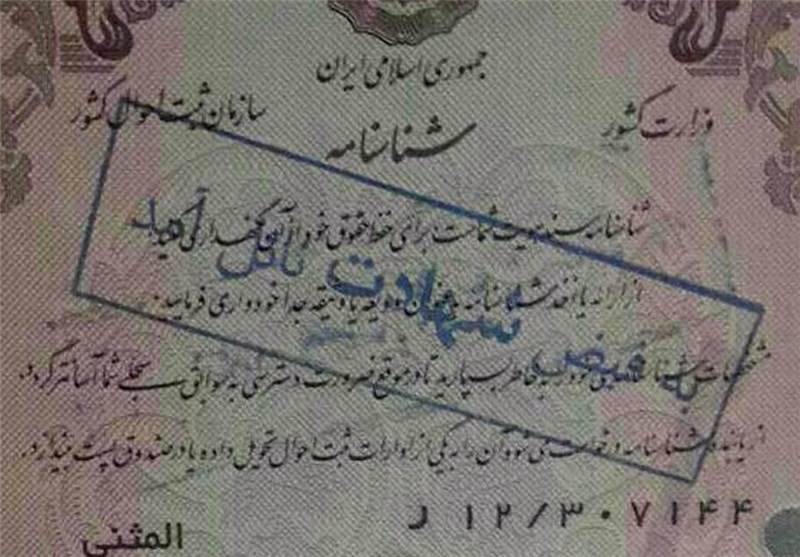 جمهوری اسلامی ایران
وزارت کشور
سازمان ثبت احوال کشور
شناسنامه
شناسنامه سند هویت شماست برای حفظ حقوق خود از آن نگهداری کنید.
از ارائه یا اخذ شناسنامه بعنوان ودیعه یا وثیقه جدا خودداری فرمایید.
مشخصات شناسنامه‌ای خود را به خاطر بسپارید تا در موقع ضرورت دسترسی به سوابق سجلی شما آسانتر گردد.
از یابنده شناسنامه درخواست می‌شود آن را به یکی از ادارات ثبت احوال تحویل داده یا در صندوق پست بیندازد.
به فیض شهادت نائل آمد
ل ۱۲/۳۰۷۱۴۴
المثنی